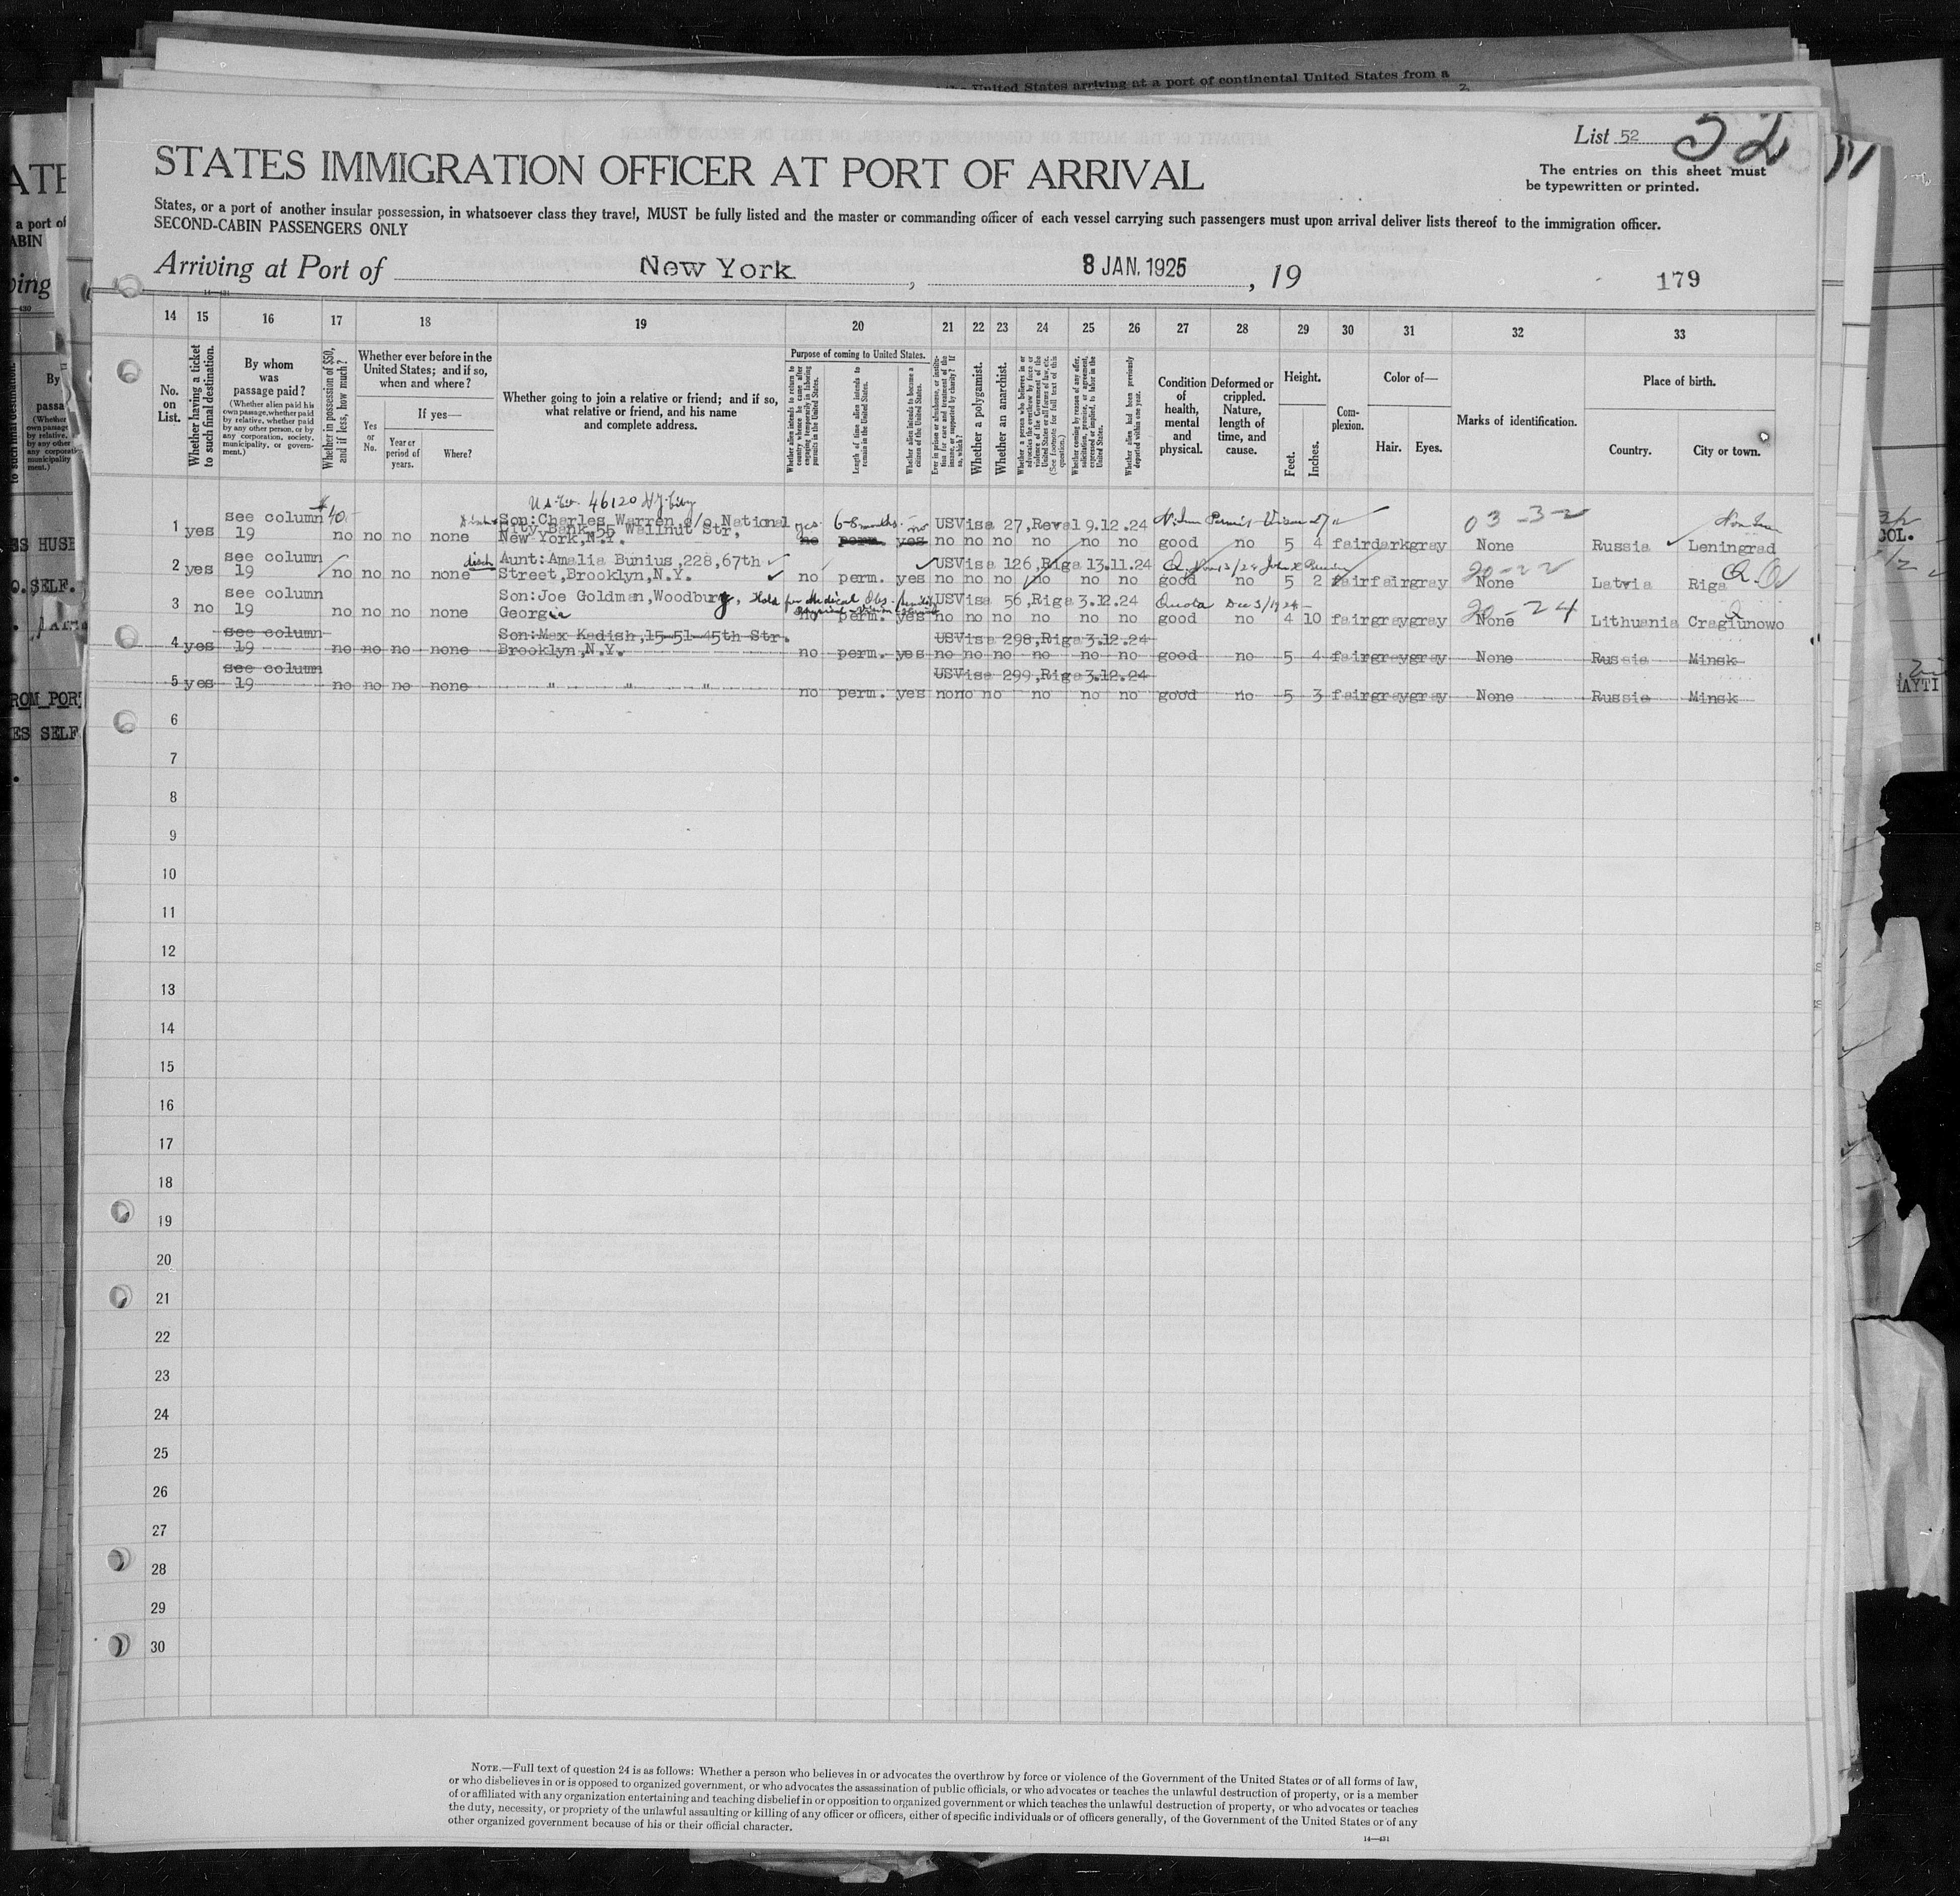 United States arriving at a port of continental United States from a
List 52
52
The entries on this sheet must
be typewritten or printed.
STATES IMMIGRATION OFFICER AT PORT OF ARRIVAL
States, or a port of another insular possession, in whatsoever class they travel, MUST be fully listed and the master or commanding officer of each vessel carrying such passengers must upon arrival deliver lists thereof to the immigration officer.
SECOND-CABIN PASSENGERS ONLY
Arriving at Port of New York, 8 JAN. 1925, 19
179
14 15 16 17 18 19 20 21 22 23 24 25 26 27 28 29 30 31 32 33
No. on List.
Whether having a ticket to such final destination.
By whom was passage paid?
(Whether alien paid his own passage, whether paid by relative, whether paid by any other person, or by any corporation, society, municipality, or government.)
Whether in possession of $50, and if less, how much?
Whether ever before in the United States; and if so, when and where?
Yes or No.
If yes—
Year or period of years.
Where?
Whether going to join a relative or friend; and if so, what relative or friend, and his name and complete address.
Purpose of coming to United States.
Whether alien intends to return to country whence he came after engaging temporarily in laboring pursuits in the United States.
Length of time alien intends to remain in the United States.
Whether alien intends to become a citizen of the United States.
Ever in prison or almshouse, or institution for care and treatment of the insane, or supported by charity? If so, which?
Whether a polygamist.
Whether an anarchist.
Whether a person who believes in or advocates the overthrow by force or violence of the Government of the United States or all forms of law, etc. (See footnote for full text of this question.)
Whether coming by reason of any offer, solicitation, promise, or agreement, expressed or implied, to labor in the United States.
Whether alien had been previously deported within one year.
Condition of health, mental and physical.
Deformed or crippled. Nature, length of time, and cause.
Height.
Feet. Inches.
Complexion.
Color of—
Hair. Eyes.
Marks of identification.
Place of birth.
Country. City or town.
46120
$40.-
1 yes see column 19 no no no none Son:Charles Warren c/o National City Bank 55 Wallnut Str, New York,N.Y. yes 6-8 months no no perm. yes USVisa 27,Reval 9.12.24 no no no no no no good no 5 4 fair dark gray 03-3-2 None Russia Leningrad
2 yes see column 19 no no no none Aunt:Amalia Bunius,228,67th Street,Brooklyn,N.Y. no perm. yes USVisa 126,Riga 13.11.24 no no no no no no good no 5 2 fair fair gray 20-22 None Latvia Riga
3 no see column 19 no no no none Son:Joe Goldman,Woodbury, Georgia Hold for Medical Obs. no perm. yes USVisa 56,Riga 3.12.24 Quota Dec 3/1924 no no no no no no good no 4 10 fair gray gray 20-24 None Lithuania Cragiunowo
4 yes see column 19 no no no none Son:Max Kadish,15-51-45th Str. Brooklyn,N.Y. no perm. yes USVisa 298,Riga 3.12.24 no no no no no no good no 5 4 fair gray gray None Russia Minsk
5 yes see column 19 no no no none " " " no perm. yes USVisa 299,Riga 3.12.24 no no no no no no good no 5 3 fair gray gray None Russia Minsk
6
7
8
9
10
11
12
13
14
15
16
17
18
19
20
21
22
23
24
25
26
27
28
29
30
NOTE.—Full text of question 24 is as follows: Whether a person who believes in or advocates the overthrow by force or violence of the Government of the United States or of all forms of law,
or who disbelieves in or is opposed to organized government, or who advocates the assassination of public officials, or who advocates or teaches the unlawful destruction of property, or is a member
of or affiliated with any organization entertaining and teaching disbelief in or opposition to organized government or which teaches the unlawful destruction of property, or who advocates or teaches
the duty, necessity, or propriety of the unlawful assaulting or killing of any officer or officers, either of specific individuals or of officers generally, of the Government of the United States or of any
other organized government because of his or their official character.
14—431